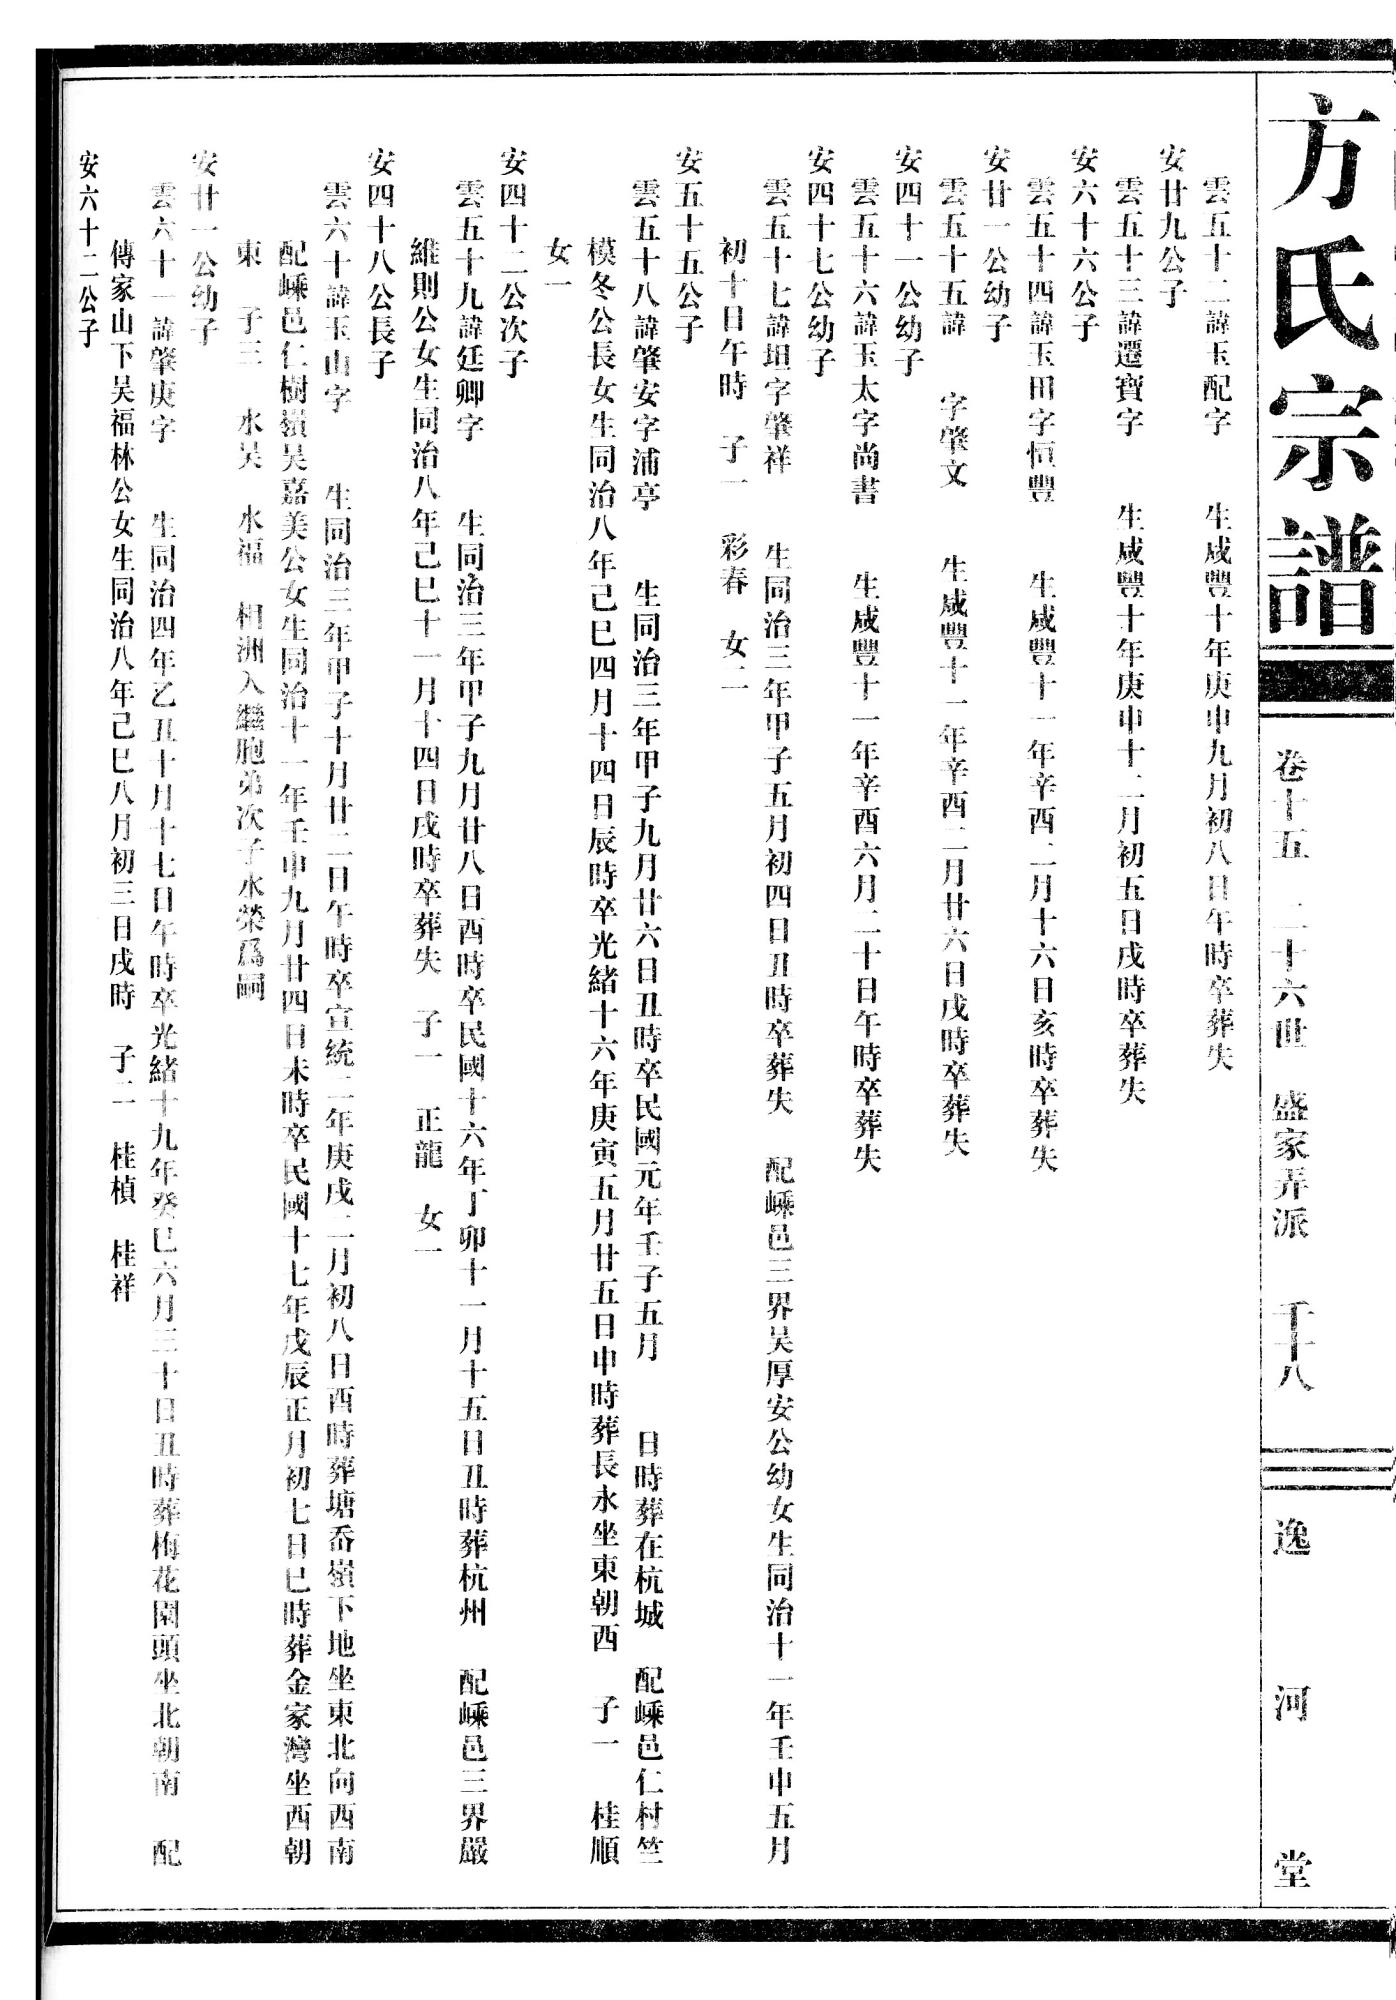 方氏宗譜
卷十五　二十六世　盛家弄派　千十八
逸河堂
雲五十二諱玉配字　生咸豐十年庚申九月初八日午時卒葬失
安廿九公子
雲五十三諱遷寶字　生咸豐十年庚申十二月初五日戌時卒葬失
安六十六公子
雲五十四諱玉田字恒豐　生咸豐十一年辛酉二月十六日亥時卒葬失
安廿一公幼子
雲五十五諱　字肇文　生咸豐十一年辛酉二月廿六日戌時卒葬失
安四十一公幼子
雲五十六諱玉太字尚書　生咸豐十一年辛酉六月二十日午時卒葬失
安四十七公幼子
雲五十七諱坦字肇祥　生同治三年甲子五月初四日丑時卒葬失　配嵊邑三界吴厚安公幼女生同治十一年壬申五月
初十日午時　子一　彩春　女二
安五十五公子
雲五十八諱肇安字浦亭　生同治三年甲子九月廿六日丑時卒民國元年壬子五月　日時葬在杭城　配嵊邑仁村竺
模冬公長女生同治八年己巳四月十四日辰時卒光緒十六年庚寅五月廿五日申時葬長永坐東朝西　子一　桂順
女一
安四十二公次子
雲五十九諱廷卿字　生同治三年甲子九月廿八日酉時卒民國十六年丁卯十一月十五日丑時葬杭州　配嵊邑三界嚴
維則公女生同治八年己巳十一月十四日戌時卒葬失　子一　正龍　女一
安四十八公長子
雲六十諱玉山字　生同治三年甲子十月廿二日午時卒宣統二年庚戌二月初八日酉時葬塘岙嶺下地坐東北向西南
配嵊邑仁樹嶺吴嘉美公女生同治十一年壬申九月廿四日未時卒民國十七年戊辰正月初七日巳時葬金家灣坐西朝
東　子三　水吴　水福　相洲入繼胞弟次子水榮爲嗣
安廿一公幼子
雲六十一諱肇庚字　生同治四年乙丑十月十七日午時卒光緒十九年癸巳六月三十日丑時葬梅花園頭坐北朝南　配
傳家山下吴福林公女生同治八年己巳八月初三日戌時　子二　桂楨　桂祥
安六十二公子